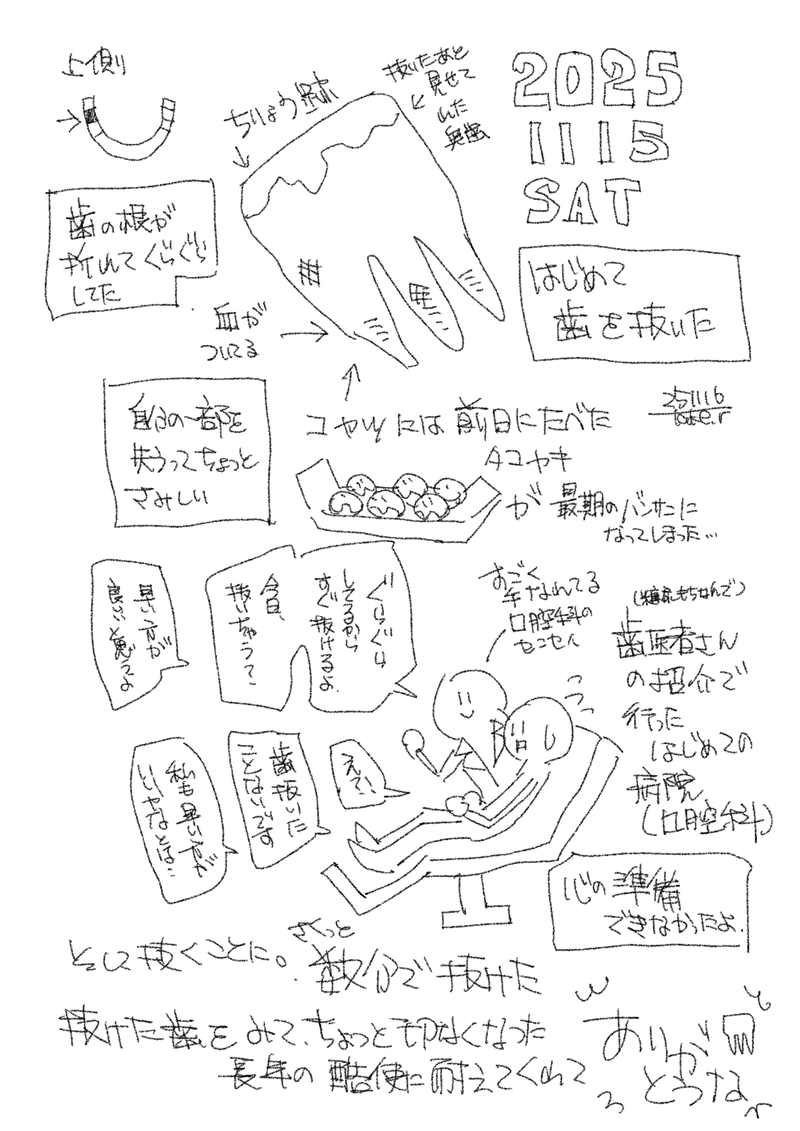 2025
1115
SAT
はじめて
歯を抜いた
上側
ちりょう跡
抜いたあと
見せて
くれた
奥歯
歯の根が
折れてぐらぐら
してた
血が
ついてる
自分の一部を
失うってちょっと
さみしい
コヤツには前日にたべた
タコヤキ
が最期のバンサンに
なってしまった…
251116
(糖尿もちなんで)
歯医者さん
の紹介で
行った
はじめての
病院
(口腔科)
すごく
手なれてる
口腔科の
センセイ
ぐらぐら
してるから
すぐ抜けるよ。
今日、
抜いちゃう?
早い方が
良いと思うよ
えっ!
歯抜いた
ことないです
私も早い方が
いいかなとは…
心の準備
できなかったよ。
そして抜くことに。
さくっと
数分で抜けた
抜けた歯をみて、ちょっと切なくなった
長年の酷使に耐えてくれて
ありが
とうな